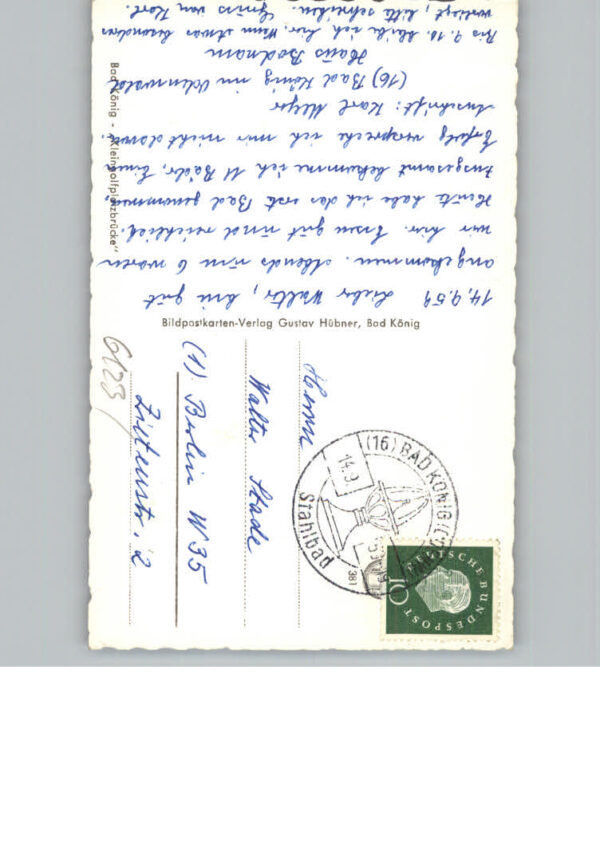 14.9.59 Lieber Walter, bin gut
angekommen. Abends um 6 waren
wir hier. Essen gut und reichlich.
Heute habe ich das erste Bad genommen,
insgesamt bekomme ich 11 Bäder. Einen
Erfolg verspreche ich mir nicht davon.
Anschrift: Karl Meyer
(16) Bad König im Odenwald
Haus Bodmann
Bis 9.10. bleibe ich hier. Wenn etwas besonderes
vorliegt, bitte schreiben. Gruss von Karl.
Bad König - "Kleingolfplatzbrücke"
Bildpostkarten-Verlag Gustav Hübner, Bad König
Herrn
Walter Stade
(1) Berlin W 35
Zietenstr. 2
6123
(16) BAD KÖNIG
14.9.
Stahlbad
381
DEUTSCHE BUNDESPOST
10